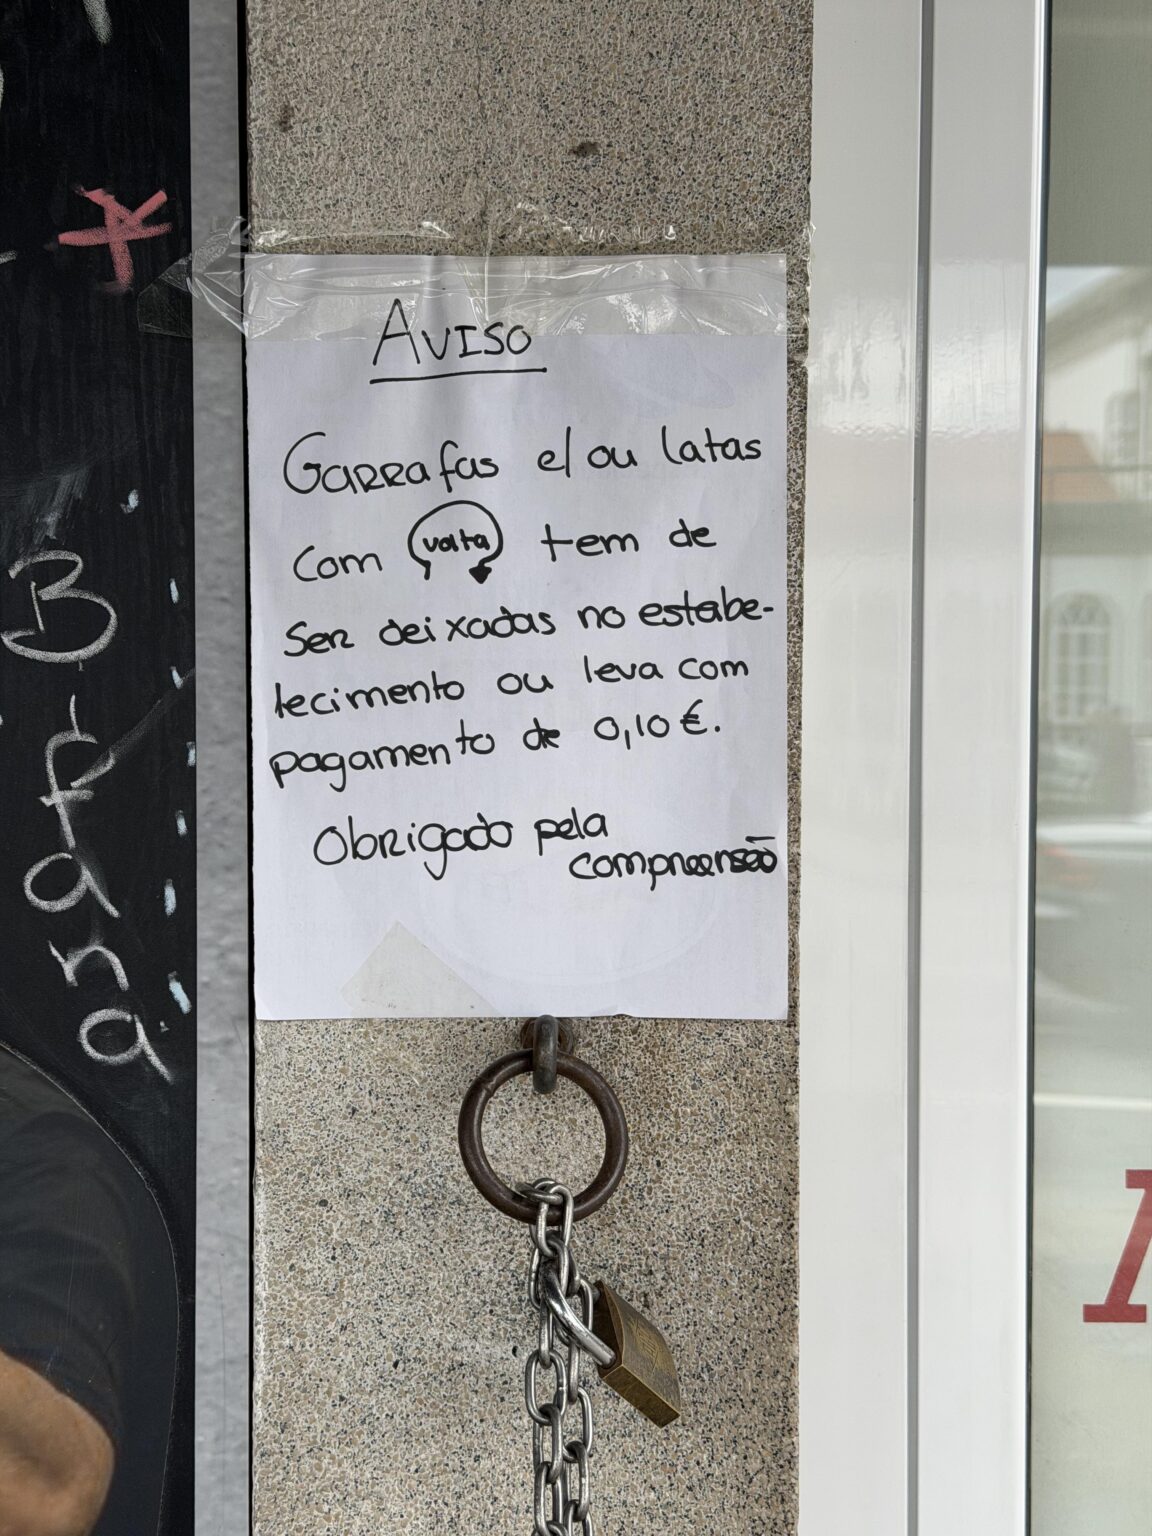 AVISO
Garrafas e/ou latas
com volta tem de
ser deixadas no estabe-
lecimento ou leva com
pagamento de 0,10€.
Obrigado pela
compreensão